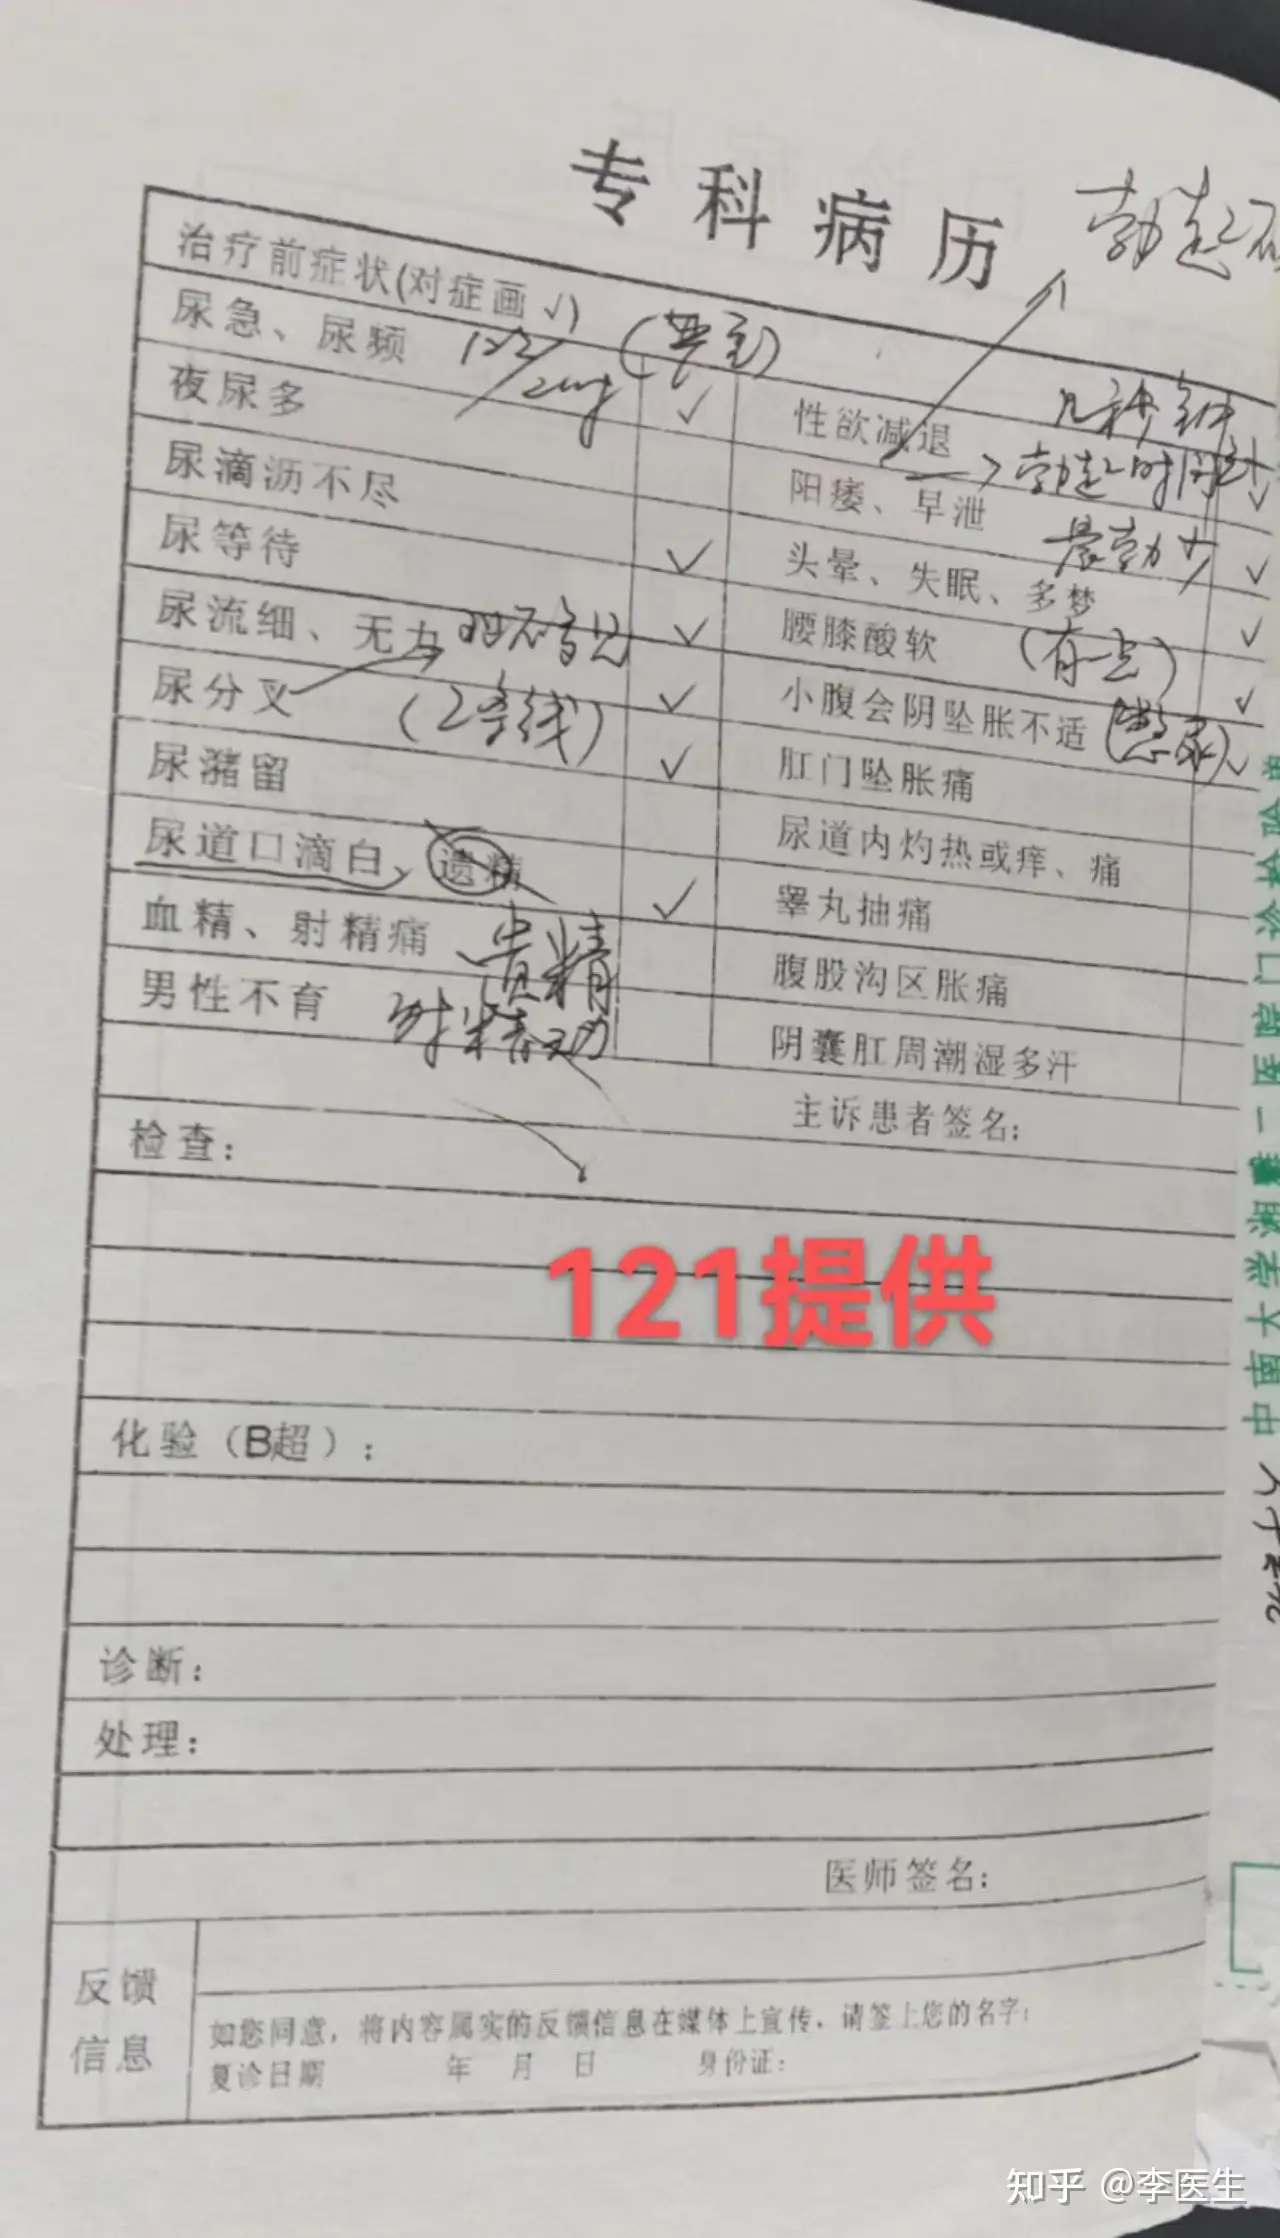 专科病历
勃起
治疗前症状(对症画√)
尿急、尿频
夜尿多 √
尿滴沥不尽
尿等待 √
尿流细、无力 √
尿分叉 (2条线) √
尿潴留 √
尿道口滴白、遗精
血精、射精痛 √
男性不育 射精无力
性欲减退 几秒钟
阳痿、早泄 → 勃起时间 √
头晕、失眠、多梦 晨勃少 √
腰膝酸软 (有一点) √
小腹会阴坠胀不适 (憋尿) √
肛门坠胀痛 √
尿道内灼热或痒、痛
睾丸抽痛
腹股沟区胀痛
阴囊肛周潮湿多汗
主诉患者签名:
检查:
121提供
化验(B超):
诊断:
处理:
医师签名:
反馈
信息
如您同意,将内容属实的反馈信息在媒体上宣传,请签上您的名字:
复诊日期 年 月 日 身份证:
中南大学湘雅一医院门诊检验
知乎 @李医生